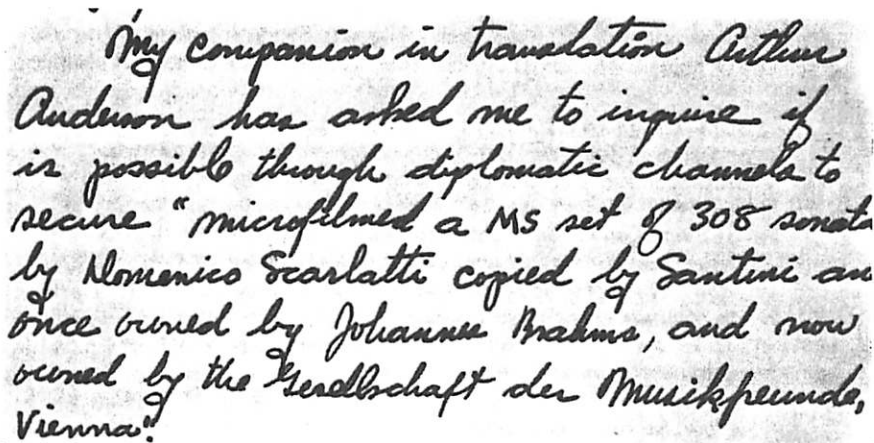 My companion in translation Arthur
Anderson has asked me to inquire if
is possible through diplomatic channels to
secure "microfilmed a MS set of 308 sonata
by Domenico Scarlatti copied by Santini an
once owned by Johannes Brahms, and now
owned by the Gesellschaft der Musikfreunde,
Vienna".